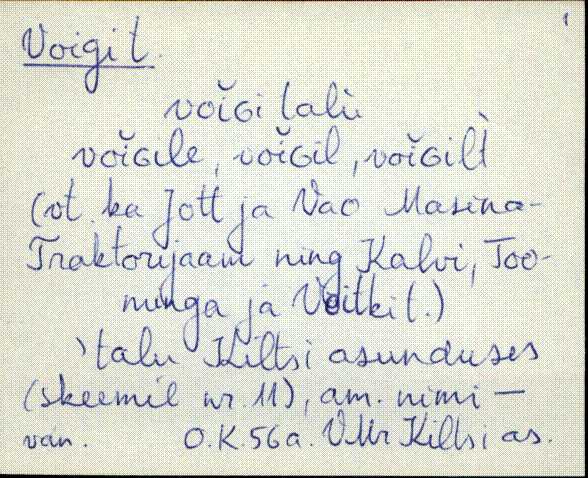 Voigi t.
voĭGi talù
voĭGile, voĭGil, voĭGilt̀
(vt. ka Jott ja Vao Masina-
Traktorijaam ning Kalvi, Too-
minga ja Voitki t.)
talu Kiltsi asunduses
(skeemil nr. 11), am. nimi —
van. O.K. 56 a. VMr Kiltsi as.